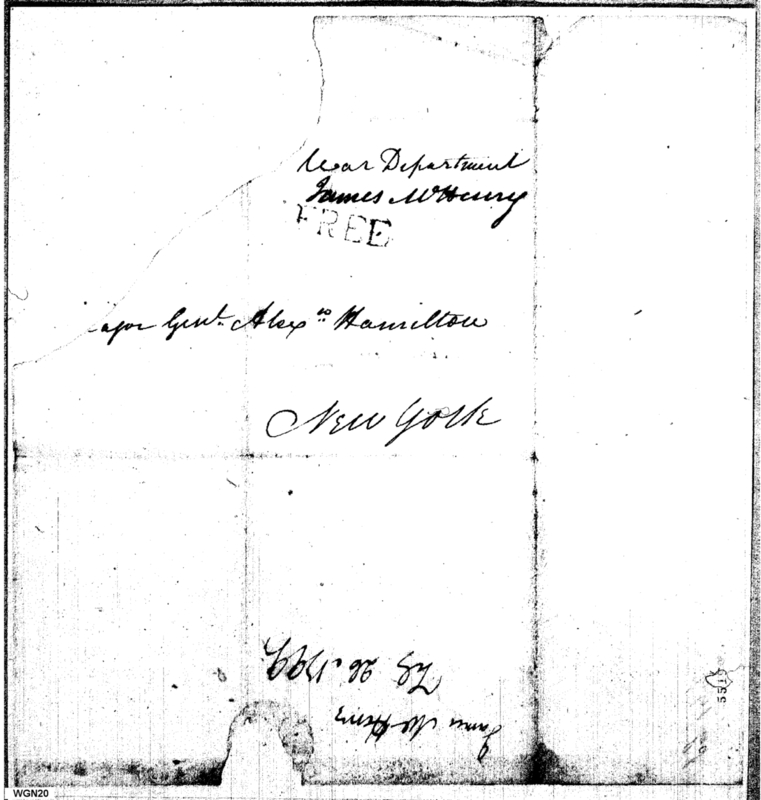 War Department
James McHenry
FREE
ajor Genl. Alexr. Hamilton
New York
James McHenry
Feb 26. 1799
WGN20